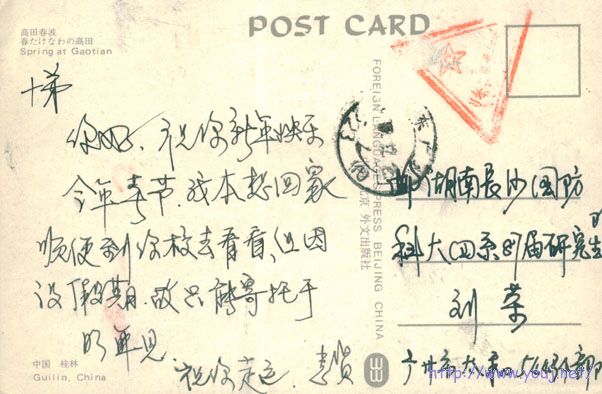 POST CARD
高田春波
春たけなわの高田
Spring at Gaotian
弟
你好、祝你新年快乐
今年春节,我本想回家
顺便到你校去看看,但因
没了假期,故只能寄托于
明年见.
祝你走运.
中国 桂林
Guilin, China
FOREIGN LANGUAGES PRESS BEIJING CHINA
北京 外文出版社
邮 湖南长沙国防
科大四系87届研究生
刘 荣
广州市
http://www.youj.net/